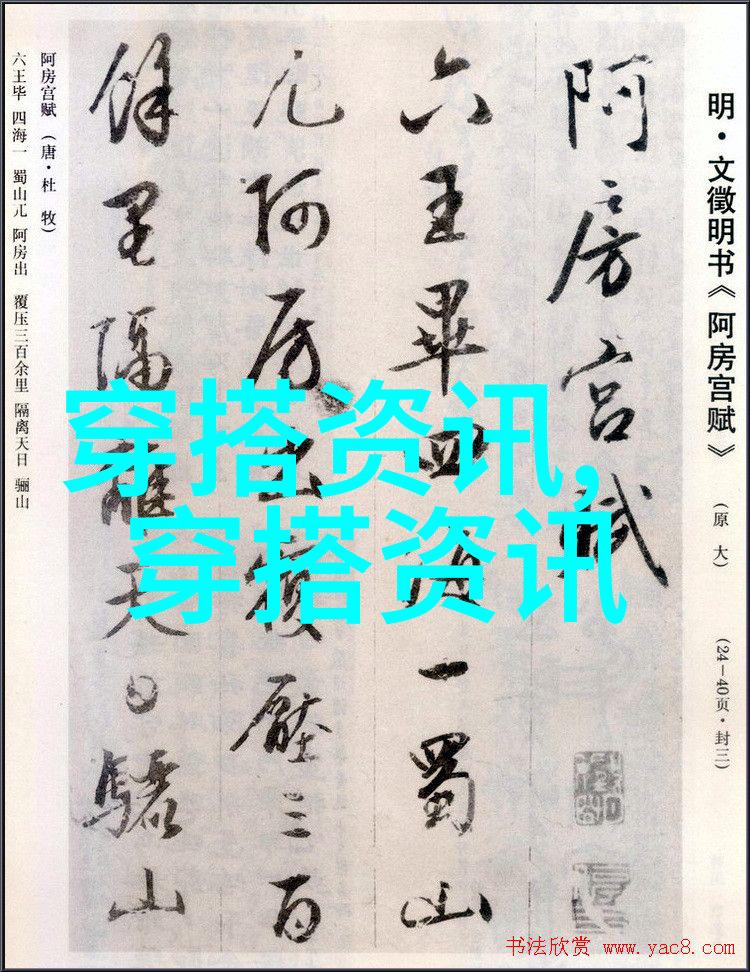 明·文徵明书《阿房宫赋》（原大）（24—40页·封三）
阿房宮賦
六王畢四海一蜀山
兀阿房出覆壓三百
餘里隔離天日驪山
阿房宫赋（唐·杜牧）
六王毕 四海一 蜀山兀 阿房出 覆压三百余里 隔离天日 骊山
穿搭资讯,
穿搭资讯
书法欣赏 www.yac8.com